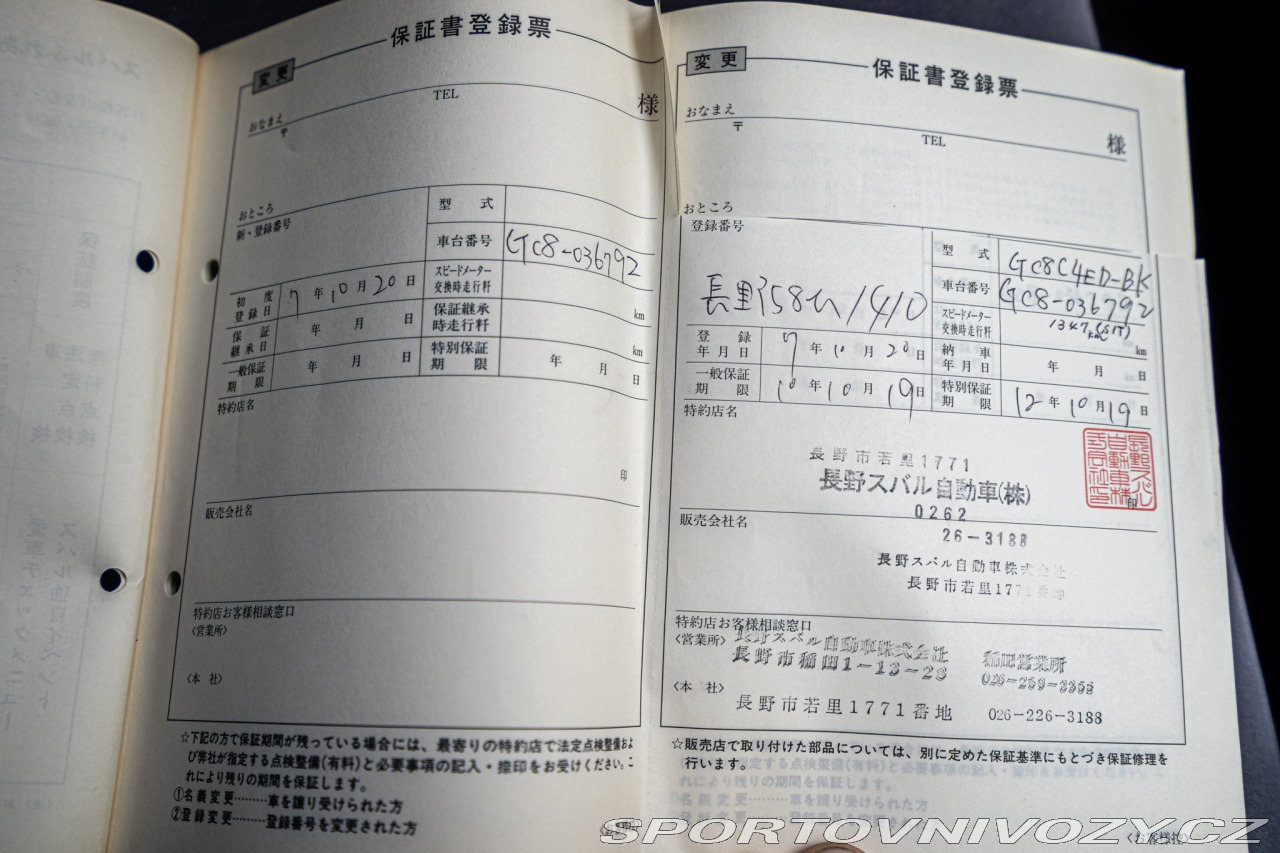 保証書登録票
変更
TEL
様
おなまえ
〒
おところ
新・登録番号
型 式
車台番号 GC8-036792
初度登録日 7年10月20日
スピードメーター交換時走行粁 km
保証継承日 年 月 日
保証継承時走行粁 km
一般保証期限 年 月 日
特別保証期限 年 月 日
特約店名
印
販売会社名
特約店お客様相談窓口
〈営業所〉
〈本 社〉
☆下記の方で保証期間が残っている場合には、最寄りの特約店で法定点検整備およ
び弊社が指定する点検整備(有料)と必要事項の記入・捺印をお受けください。こ
れにより残りの期間を保証します。
①名義変更………車を譲り受けられた方
②登録変更………登録番号を変更された方
保証書登録票
変更
おなまえ
〒
TEL
様
おところ
登録番号
長野58ひ1410
型 式 GC8C4ED-BK
車台番号 GC8-036792
スピードメーター交換時走行粁 1347km
登録年月日 7年10月20日
納車年月日 年 月 日
一般保証期限 10年10月19日
特別保証期限 12年10月19日
特約店名
長野市若里1771
長野スバル自動車(株)
0262
26-3188
印
販売会社名
長野スバル自動車株式会社
長野市若里1771番地
特約店お客様相談窓口
〈営業所〉 長野スバル自動車株式会社 稲田営業所
長野市稲田1-13-23
〈本 社〉 長野市若里1771番地 026-226-3188
☆販売店で取り付けた部品については、別に定めた保証基準にもとづき保証修理を
行います。
〈お客様控〉
SPORTOVNIVOZY.CZ